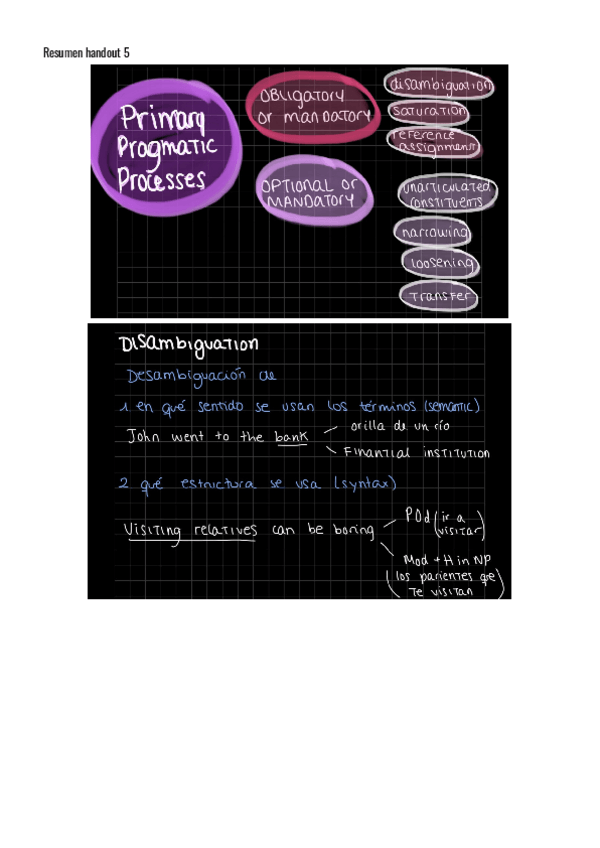 Resumen handout 5
Primary
Pragmatic
Processes
OBLIGATORY
or mandatory
OPTIONAL OR
MANDATORY
disambiguation
saturation
reference
assignment
unarticulated
constituents
narrowing
loosening
Transfer
Disambiguation
Desambiguación de
1 en qué sentido se usan los términos (semantic)
John went to the bank
orilla de un río
Financial institution
2 qué estructura se usa (syntax)
Visiting relatives can be boring
POd (ir a
visitar)
Mod + H in NP
(los parientes que
te visitan)